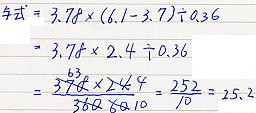 原式 = 3.78 × (6.1 - 3.7) ÷ 0.36
= 3.78 × 2.4 ÷ 0.36
63
= 378 × 24 4 / 360 60 10 = 252 / 10 = 25.2